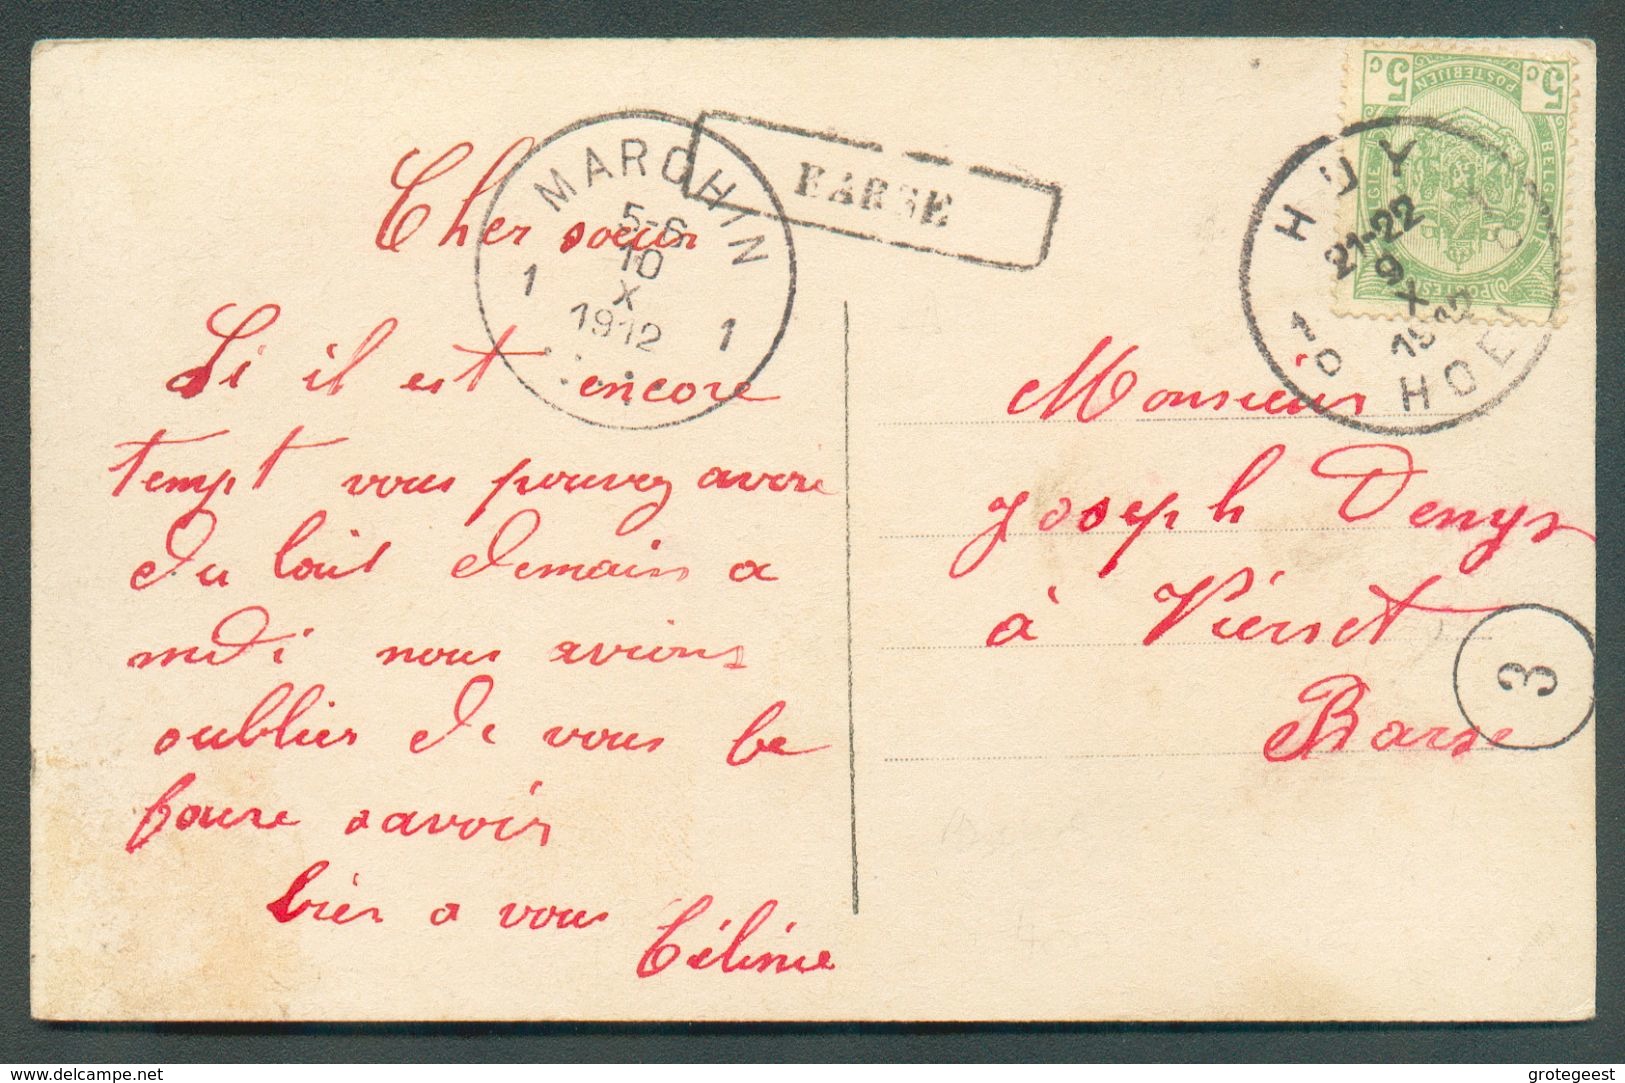 Cher soeur
Si il est encore
tempt vous pouvez avoire
du lait demain a
midi nous avions
oublier de vous le
faire savoir
bien a vous
Céline
MARCHIN
5-6
10
X
1912
1 1
BARSE
HUY
21-22
9
X
1912
HOEI
1
D
5 C
5 C
POSTERIJEN
BELGIË
BELGIE
POSTES
Monsieur
Joseph Denys
à Vierset
Barse
3
www.delcampe.net
grotegeest